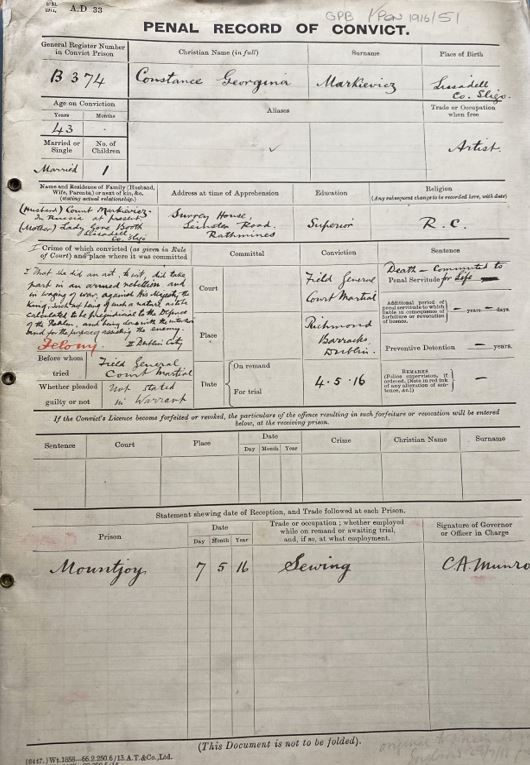 A.D 33
GPB / PEN 1916/51
PENAL RECORD OF CONVICT.
General Register Number in Convict Prison
Christian Name (in full)
Surname
Place of Birth
B 374
Constance Georgina
Markievicz
Lissadell
Co. Sligo.
Age on Conviction
Years Months
43
Aliases
Trade or Occupation when free
Artist.
Married or Single
No. of Children
Married 1
Name and Residence of Family (Husband, Wife, Parents,) or next of kin, &c.
(stating actual relationship.)
Address at time of Apprehension
Education
Religion
(Any subsequent change to be recorded here, with date)
(Husband) Count Markievicz.
In Russia at present
(Mother) Lady Gore Booth
Lissadell
Co. Sligo
Surrey House,
Leinster Road.
Rathmines
Superior
R. C.
Crime of which convicted (as given in Rule of Court) and place where it was committed
Committed
Conviction
Sentence
I That she did an act, to wit, did take
part in an armed rebellion and
in waging of war against His Majesty the
King, such act being of such a nature as to be
calculated to be prejudicial to the Defence
of the Realm, and being done with the intention
and for the purpose of assisting the enemy.
Felony. II Dublin City
Court
Field General
Court Martial
Death — Commuted to
Penal Servitude for Life
Additional period of penal servitude to which liable in consequence of forfeiture or revocation of licence.
— years — days.
Place
Richmond
Barracks.
Dublin.
Preventive Detention — years.
Before whom tried
Field General
Court Martial
Date
On remand
For trial
4 . 5 . 16
REMARKS
(Police supervision, if ordered. (State in red ink of any alteration of sentence, &c.)
Whether pleaded guilty or not
Not stated
in Warrant
If the Convict's Licence become forfeited or revoked, the particulars of the offence resulting in such forfeiture or revocation will be entered
below, at the receiving prison.
Sentence
Court
Place
Date
Day Month Year
Crime
Christian Name
Surname
Statement shewing date of Reception, and Trade followed at each Prison.
Prison
Date
Day Month Year
Trade or occupation; whether employed while on remand or awaiting trial, and, if so, at what employment.
Signature of Governor or Officer in Charge
Mountjoy 7 5 16 Sewing C.A. Munro
(This Document is not to be folded).
(6447.) Wt.1858—66.2.250.6/13.A.T.&Co.,Ltd.